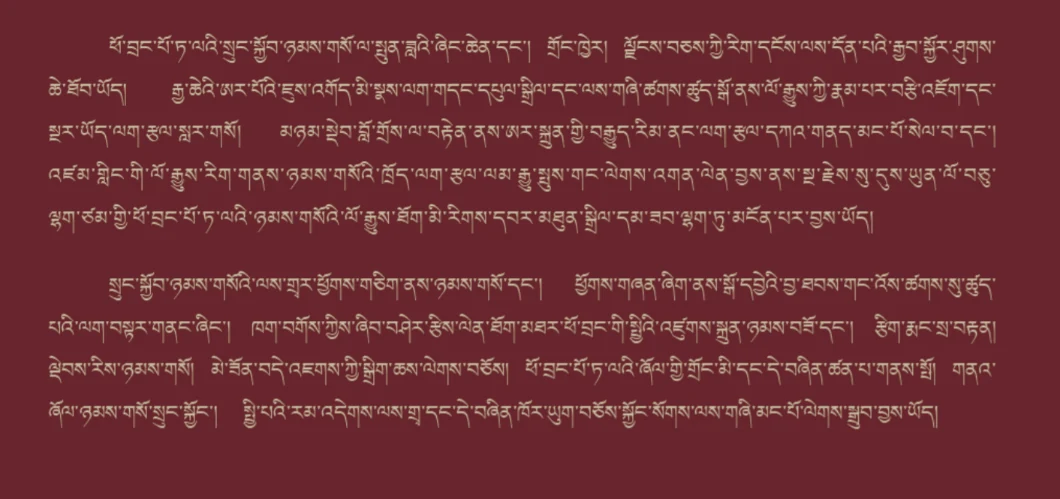 ཕོ་བྲང་པོ་ཏ་ལའི་སྲུང་སྐྱོབ་ཉམས་གསོ་ལ་སྤུན་ཟླའི་ཞིང་ཆེན་དང་། གྲོང་ཁྱེར། ལྗོངས་བཅས་ཀྱི་རིག་དངོས་ལས་དོན་པའི་རྒྱབ་སྐྱོར་ཤུགས་
ཆེ་ཐོབ་ཡོད། རྒྱ་ཆེའི་ཨར་པོའི་ཇུས་འགོད་མི་སྣས་ལག་གདང་དཔུལ་སྒྲིལ་དང་ལས་གཞི་ཚགས་ཚུད་སྒོ་ནས་ལོ་རྒྱུས་ཀྱི་རྣམ་པར་བརྩི་འཇོག་དང་
སྔར་ཡོད་ལག་རྩལ་སླར་གསོ། མཉམ་སྡེབ་བློ་གྲོས་ལ་བརྟེན་ནས་ཨར་སྐྲུན་གྱི་བརྒྱུད་རིམ་ནང་ལག་རྩལ་དཀའ་གནད་མང་པོ་སེལ་བ་དང་།
འཛམ་གླིང་གི་ལོ་རྒྱུས་རིག་གནས་ཉམས་གསོའི་ཁྲོད་ལག་རྩལ་ལམ་རྒྱུ་སྤུས་གང་ལེགས་འགན་ལེན་བྱས་ནས་སྔ་རྗེས་སུ་དུས་ཡུན་ལོ་བཅུ་
ལྷག་ཙམ་གྱི་ཕོ་བྲང་པོ་ཏ་ལའི་ཉམས་གསོའི་ལོ་རྒྱུས་ཐོག་མི་རིགས་དབར་མཐུན་སྒྲིལ་དམ་ཟབ་ལྷག་ཏུ་མངོན་པར་བྱས་ཡོད།
སྲུང་སྐྱོབ་ཉམས་གསོའི་ལས་གྲྭར་ཕྱོགས་གཅིག་ནས་ཉམས་གསོ་དང་། ཕྱོགས་གཞན་ཞིག་ནས་སྒོ་དབྱེའི་བྱ་ཐབས་གང་འོས་ཚགས་སུ་ཚུད་
པའི་ལག་བསྟར་གནང་ཞིང་། ཁག་བགོས་ཀྱིས་ཞིབ་བཤེར་རྩིས་ལེན་ཐོག་མཐར་ཕོ་བྲང་གི་སྤྱིའི་འཛུགས་སྐྲུན་ཉམས་བཟོ་དང་། རྩིག་རྨང་སྲ་བརྟན།
ལྡེབས་རིས་ཉམས་གསོ། མེ་ཟོན་བདེ་འཇགས་ཀྱི་སྒྲིག་ཆས་ལེགས་བཅོས། ཕོ་བྲང་པོ་ཏ་ལའི་ཞོལ་གྱི་གྲོང་མི་དང་དེ་བཞིན་ཚན་པ་གནས་སྤོ། གནའ་
ཞོལ་ཉམས་གསོ་སྲུང་སྐྱོང་། སྤྱི་པའི་རམ་འདེགས་ལས་གྲྭ་དང་དེ་བཞིན་ཁོར་ཡུག་བཅོས་སྐྱོང་སོགས་ལས་གཞི་མང་པོ་ལེགས་སྒྲུབ་བྱས་ཡོད།